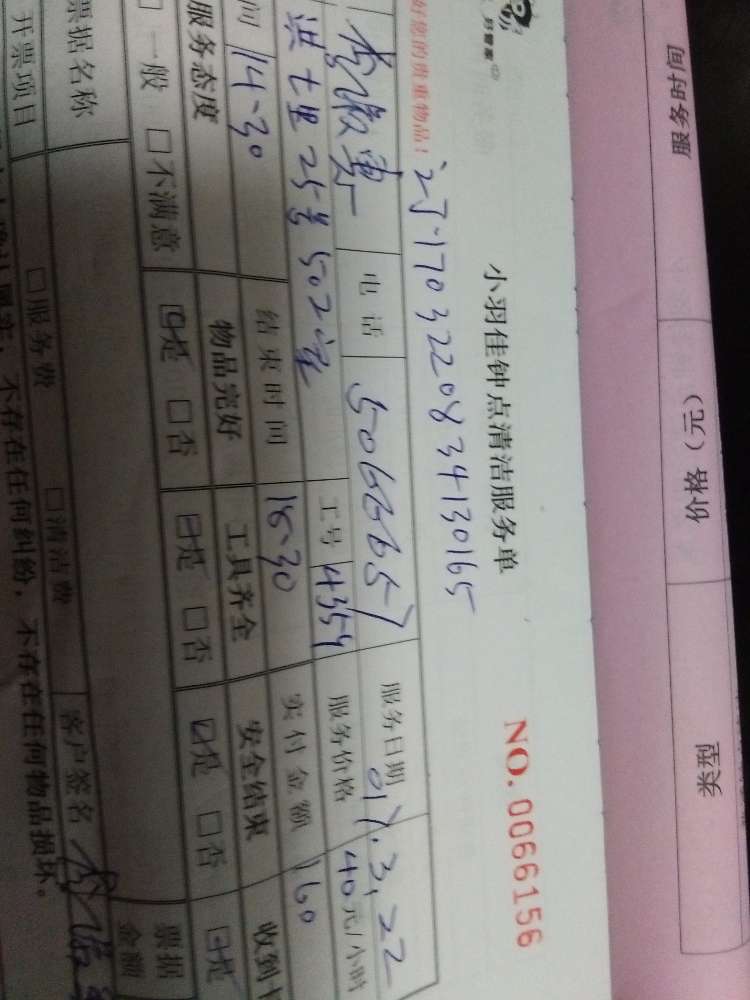 服务时间 价格（元） 类型
好管家
小羽佳钟点清洁服务单 NO. 0066156
好您的贵重物品！ 251703220834130165
电话 5066657 服务日期 017.3.22
洪七里25号502室 工号 4359 服务价格 40元/小时
间 14:30 结束时间 18:30 实付金额 160
服务态度 物品完好 工具齐全 安全结束 收到
□一般 □不满意 ☑是 □否 ☑是 □否 ☑是 □否 ☑是
票据名称 票据金额
开票项目 □服务费 □清洁费 客户签名
不存在任何纠纷，不存在任何物品损坏。